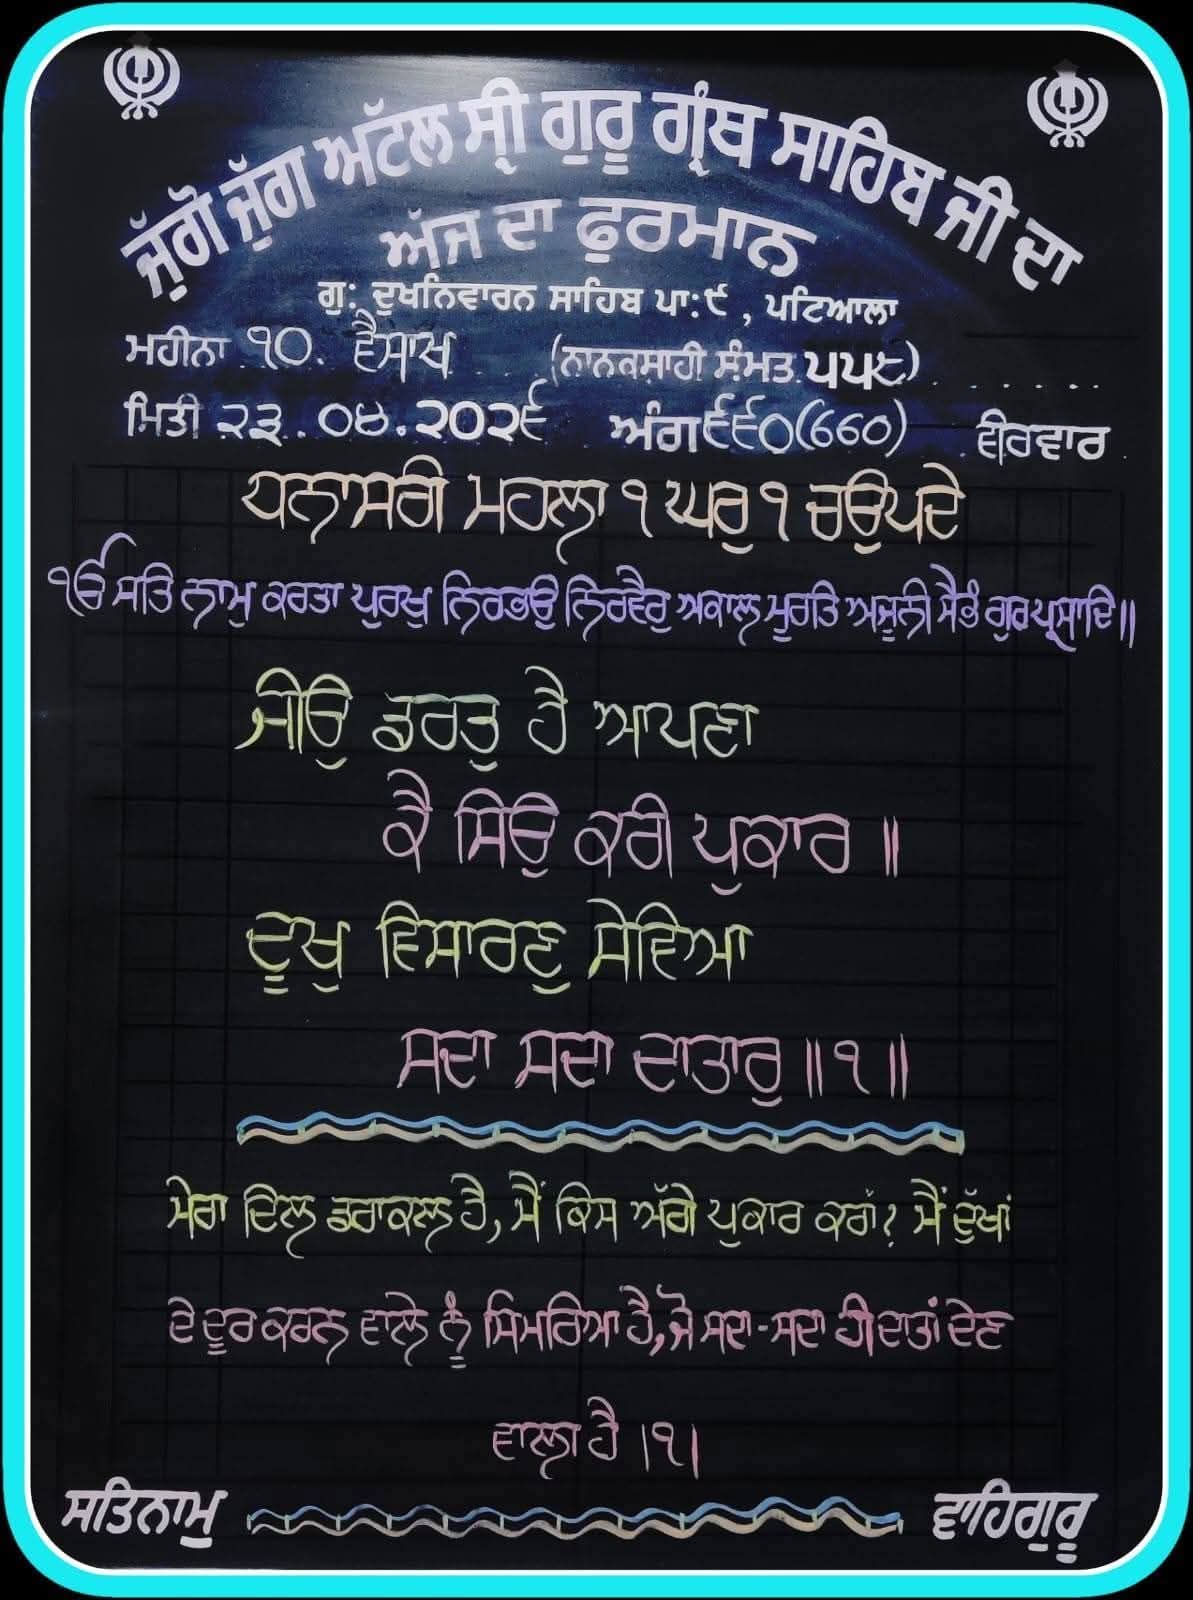 ਜੁੱਗੋ ਜੁੱਗ ਅਟੱਲ ਸ੍ਰੀ ਗੁਰੂ ਗ੍ਰੰਥ ਸਾਹਿਬ ਜੀ ਦਾ
ਅੱਜ ਦਾ ਫੁਰਮਾਨ
ਗੁ: ਦੁਖਨਿਵਾਰਨ ਸਾਹਿਬ ਪਾ:੯ , ਪਟਿਆਲਾ
ਮਹੀਨਾ ੧੦. ਵੈਸਾਖ (ਨਾਨਕਸ਼ਾਹੀ ਸੰਮਤ ੫੫੮)
ਮਿਤੀ ੨੩. ੦੪.੨੦੨੬ ਅੰਗ੬੬੦(660) ਵੀਰਵਾਰ
ਧਨਾਸਰੀ ਮਹਲਾ ੧ ਘਰੁ ੧ ਚਉਪਦੇ
ੴ ਸਤਿ ਨਾਮੁ ਕਰਤਾ ਪੁਰਖੁ ਨਿਰਭਉ ਨਿਰਵੈਰੁ ਅਕਾਲ ਮੂਰਤਿ ਅਜੂਨੀ ਸੈਭੰ ਗੁਰ ਪ੍ਰਸਾਦਿ॥
ਜੀਉ ਡਰਤੁ ਹੈ ਆਪਣਾ
ਕੈ ਸਿਉ ਕਰੀ ਪੁਕਾਰ ॥
ਦੂਖੁ ਵਿਸਾਰਣੁ ਸੇਵਿਆ
ਸਦਾ ਸਦਾ ਦਾਤਾਰੁ ॥੧॥
ਮੇਰਾ ਦਿਲ ਡਰਾਕਲ ਹੈ, ਮੈਂ ਕਿਸ ਅੱਗੇ ਪੁਕਾਰ ਕਰਾਂ? ਮੈਂ ਦੁੱਖਾਂ
ਦੇ ਦੂਰ ਕਰਨ ਵਾਲੇ ਨੂੰ ਸਿਮਰਿਆ ਹੈ, ਜੋ ਸਦਾ-ਸਦਾ ਹੀ ਦਾਤਾਂ ਦੇਣ
ਵਾਲਾ ਹੈ ।੧।
ਸਤਿਨਾਮੁ ਵਾਹਿਗੁਰੂ